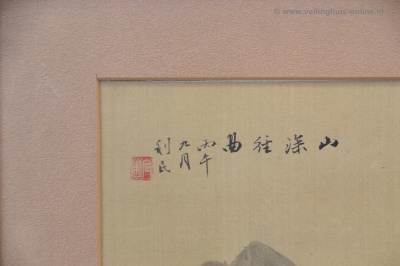 www.veilinghuis-online.nl
山深徑曲
丙午
九月
利民